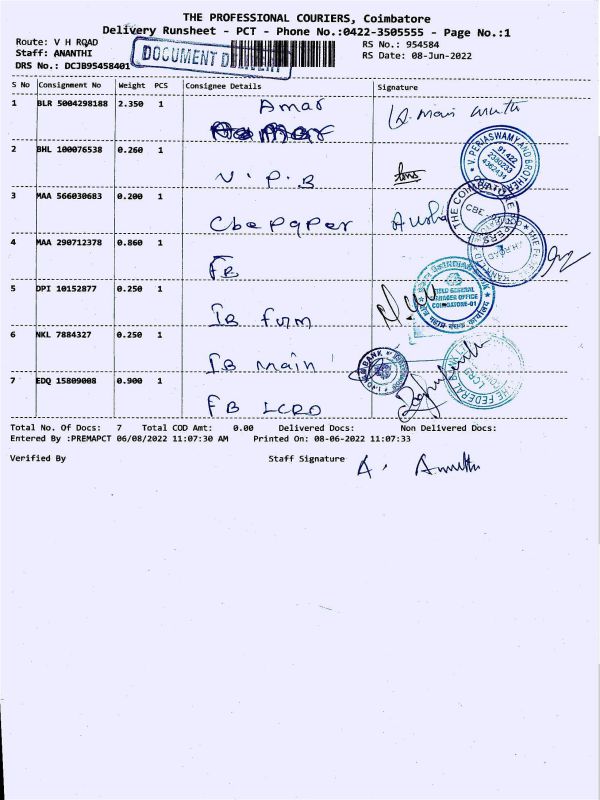 THE PROFESSIONAL COURIERS, Coimbatore
Delivery Runsheet - PCT - Phone No.:0422-3505555 - Page No.:1
Route: V H RQAD
RS No.: 954584
Staff: ANANTHI
DOCUMENT
RS Date: 08-Jun-2022
DRS No.: DCJB95458401
S No Consignment No Weight PCS Consignee Details Signature
1 BLR 5004298188 2.350 1 Amar
2 BHL 100076538 0.260 1 V.P.B
V. PERIASWAMY AND BROTHERS
3 MAA 566030683 0.200 1 Cbe Paper
CBE
4 MAA 290712378 0.860 1 FB
5 DPI 10152877 0.250 1 IB furm
INDIAN BANK
FIELD GENERAL
MANAGER OFFICE
COIMBATORE-01
6 NKL 7884327 0.250 1 IB main
7 EDQ 15809008 0.900 1 FB LCRD
THE FEDERAL BANK LTD
LCRD
Total No. Of Docs: 7 Total COD Amt: 0.00 Delivered Docs: Non Delivered Docs:
Entered By :PREMAPCT 06/08/2022 11:07:30 AM Printed On: 08-06-2022 11:07:33
Verified By Staff Signature